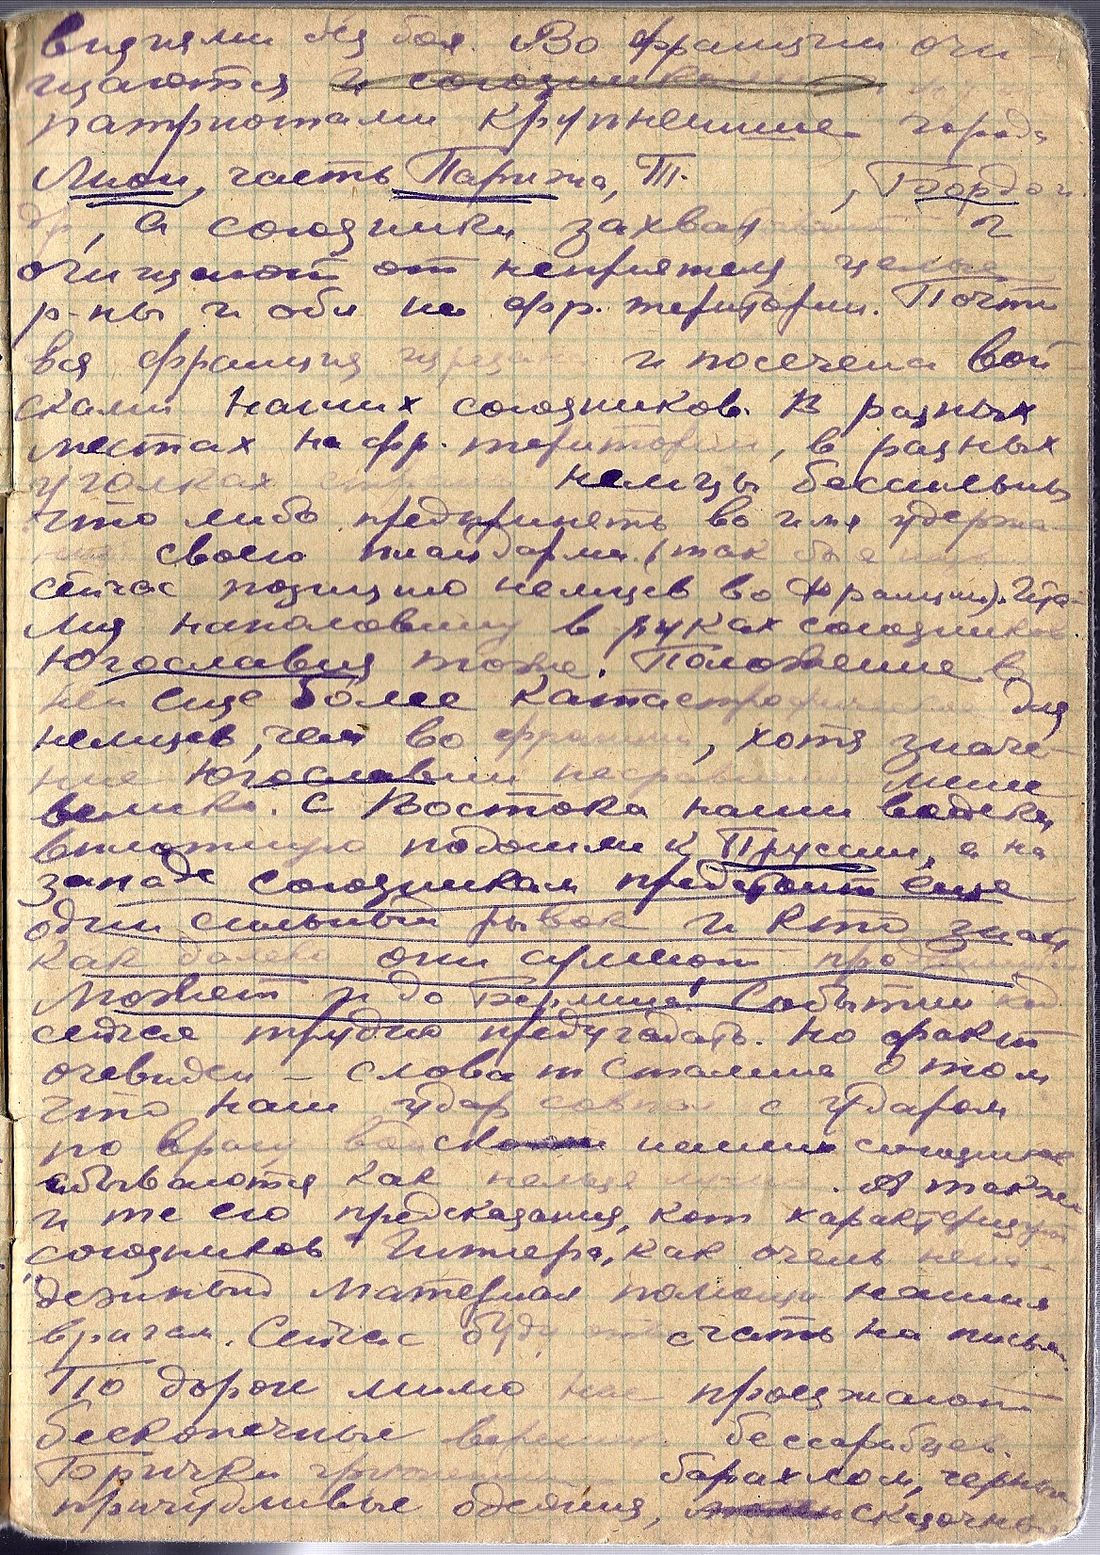 из боя. Во франции очи-
щаются и союзниками
патриотами крупнейшие города
Лион, часть Парижа, Т. , Бордо и
др, а союзники захват и
очищают от неприятеля целые
р-ны и обл на фр. территории. Почти
вся франция и посечена вой-
сками наших союзников. В разных
местах на фр. территории, в разных
уголках немцы бессильны
что либо предпринять во имя удержа-
ния своего плацдарма. (так бы я
сейчас позицию немцев во Франции). Ита-
лия наполовину в руках союзников
Югославия тоже. Положение в
ней еще более катастрофическое для
немцев, чем во франции, хотя значе-
ние Югославии мене
велико. С Востока наши войска
вплотную подошли к Пруссии, а на
западе союзникам предстоит еще
один сильный рывок и кто знает
как далеко они сумеют
Может и до Берлина! События
сейчас трудно предугадать. Но факт
очевиден – слова т Сталина о том
что наш удар совпа с ударом
по врагу войск наших союзников
сбываются как нельзя лучше. А также
и те его предсказания, кот характеризуют
союзников Гитлера, как очень нена-
дежный материал помощи нашим
врагам. Сейчас буду отвечать на письма.
По дороге мимо нас проезжают
бесконечные бессарабцев.
Брички груженные барахлом, черные
причудливые одеяния, сказочные